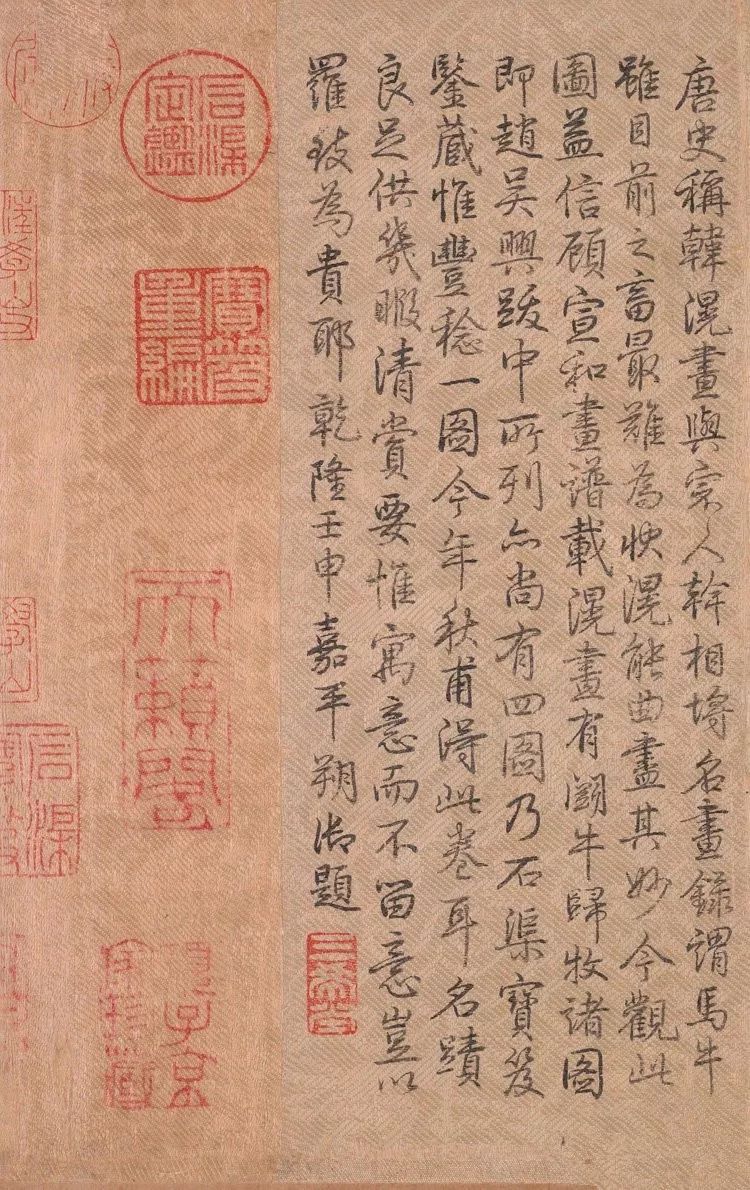 唐史稱韓滉畫與宗人幹相埒名畫錄謂馬牛
雖目前之畜最難為狀滉能曲盡其妙今觀此
圖益信顧宣和畫譜載滉畫有鬭牛歸牧諸圖
即趙吳興跋中所列亦尚有四圖乃石渠寶笈
鑒藏惟豐稔一圖今年秋甫得此卷耳名蹟
良足供幾暇清賞要惟寓意而不留意豈以
羅致為貴耶乾隆壬申嘉平朔御題
三希堂
石渠定鑑
寶笈重編
天籟閣
項子京家珍藏